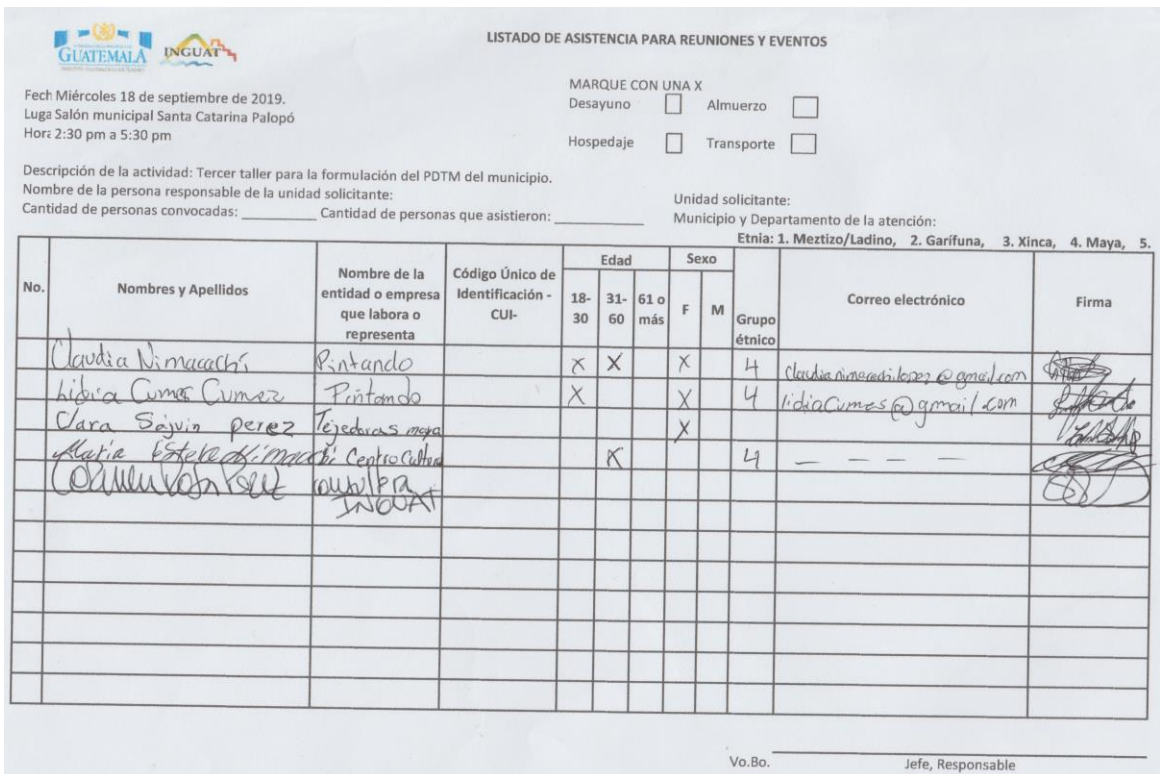 GUATEMALA
INGUAT
LISTADO DE ASISTENCIA PARA REUNIONES Y EVENTOS
MARQUE CON UNA X
Desayuno Almuerzo
Hospedaje Transporte
Fech Miércoles 18 de septiembre de 2019.
Luga Salón municipal Santa Catarina Palopó
Hora 2:30 pm a 5:30 pm
Descripción de la actividad: Tercer taller para la formulación del PDTM del municipio.
Nombre de la persona responsable de la unidad solicitante:
Unidad solicitante:
Cantidad de personas convocadas: __________ Cantidad de personas que asistieron: ____________
Municipio y Departamento de la atención:
Etnia: 1. Meztizo/Ladino, 2. Garífuna, 3. Xinca, 4. Maya, 5.
No. Nombres y Apellidos Nombre de la entidad o empresa que labora o representa Código Único de Identificación - CUI- Edad 18-30 31-60 61 o más Sexo F M Grupo étnico Correo electrónico Firma
Claudia Nimacachí Pintando X X X 4 claudianimacachilopez@gmail.com
Lidia Cumes Cumez Pintando X X 4 lidiaCumes@gmail.com
Clara Sajvin perez Tejedoras maya X
Maria Estela Nimacachi Centro Cultura X 4 — — — —
INGUAT
Vo.Bo.
Jefe, Responsable